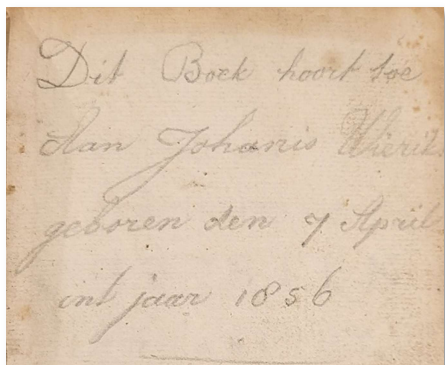 Dit Boek hoort toe
Aan Johanis
geboren den 7 April
int jaar 1856